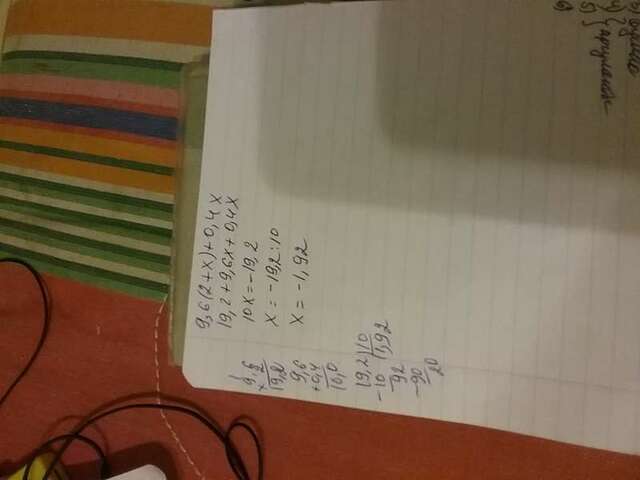 9,6(2+x)+0,4x
19,2+9,6x+0,4x
10x=-19,2
x=-19,2:10
x=-1,92
1
9,6
×2
19,2
9,6
+0,4
10,0
19,2|10
-10 1,92
92
-90
20